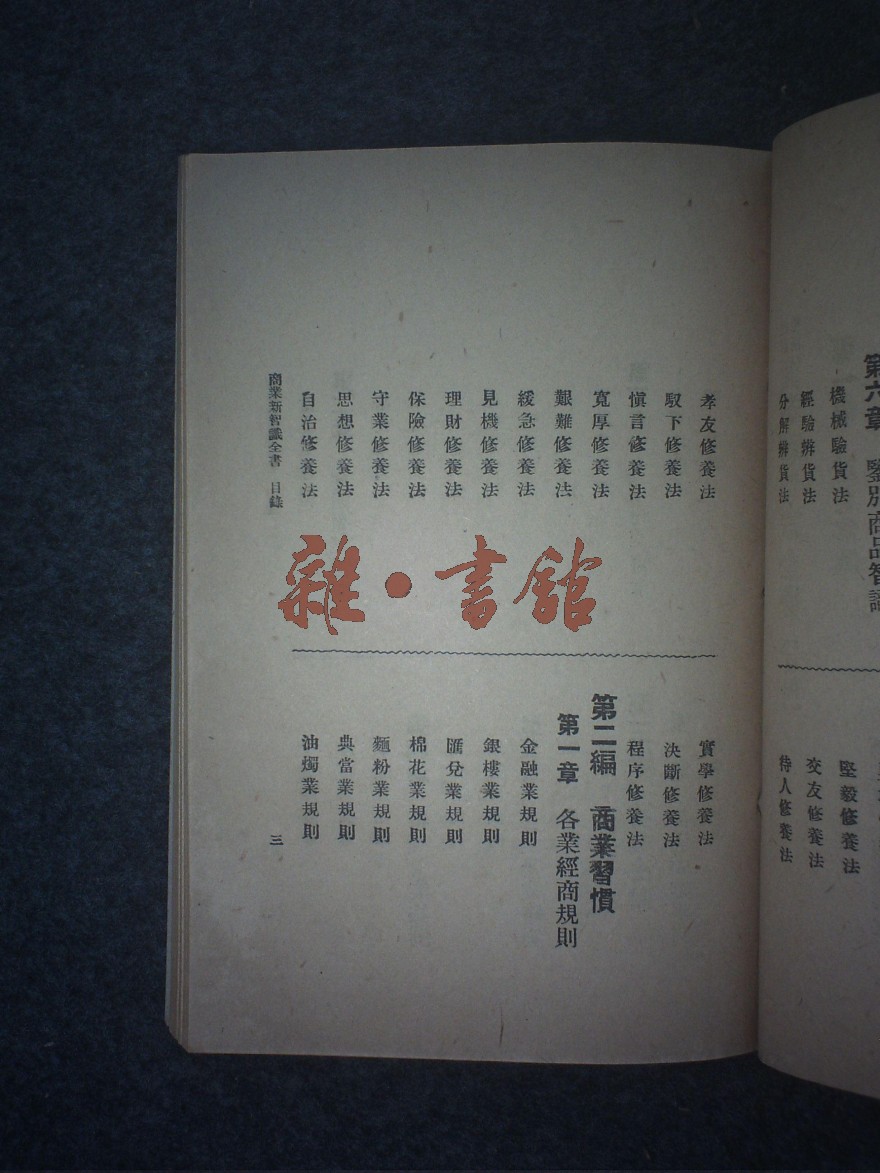 第六章 鑒別商品智識
機械驗貨法
經驗辨貨法
分解辨貨法
堅毅修養法
交友修養法
待人修養法
孝友修養法
馭下修養法
愼言修養法
寬厚修養法
艱難修養法
緩急修養法
見機修養法
理財修養法
保險修養法
守業修養法
思想修養法
自治修養法
實學修養法
決斷修養法
程序修養法
第二編 商業習慣
第一章 各業經商規則
金融業規則
銀樓業規則
匯兌業規則
棉花業規則
麵粉業規則
典當業規則
油燭業規則
商業新智識全書 目錄
三
雜·書館